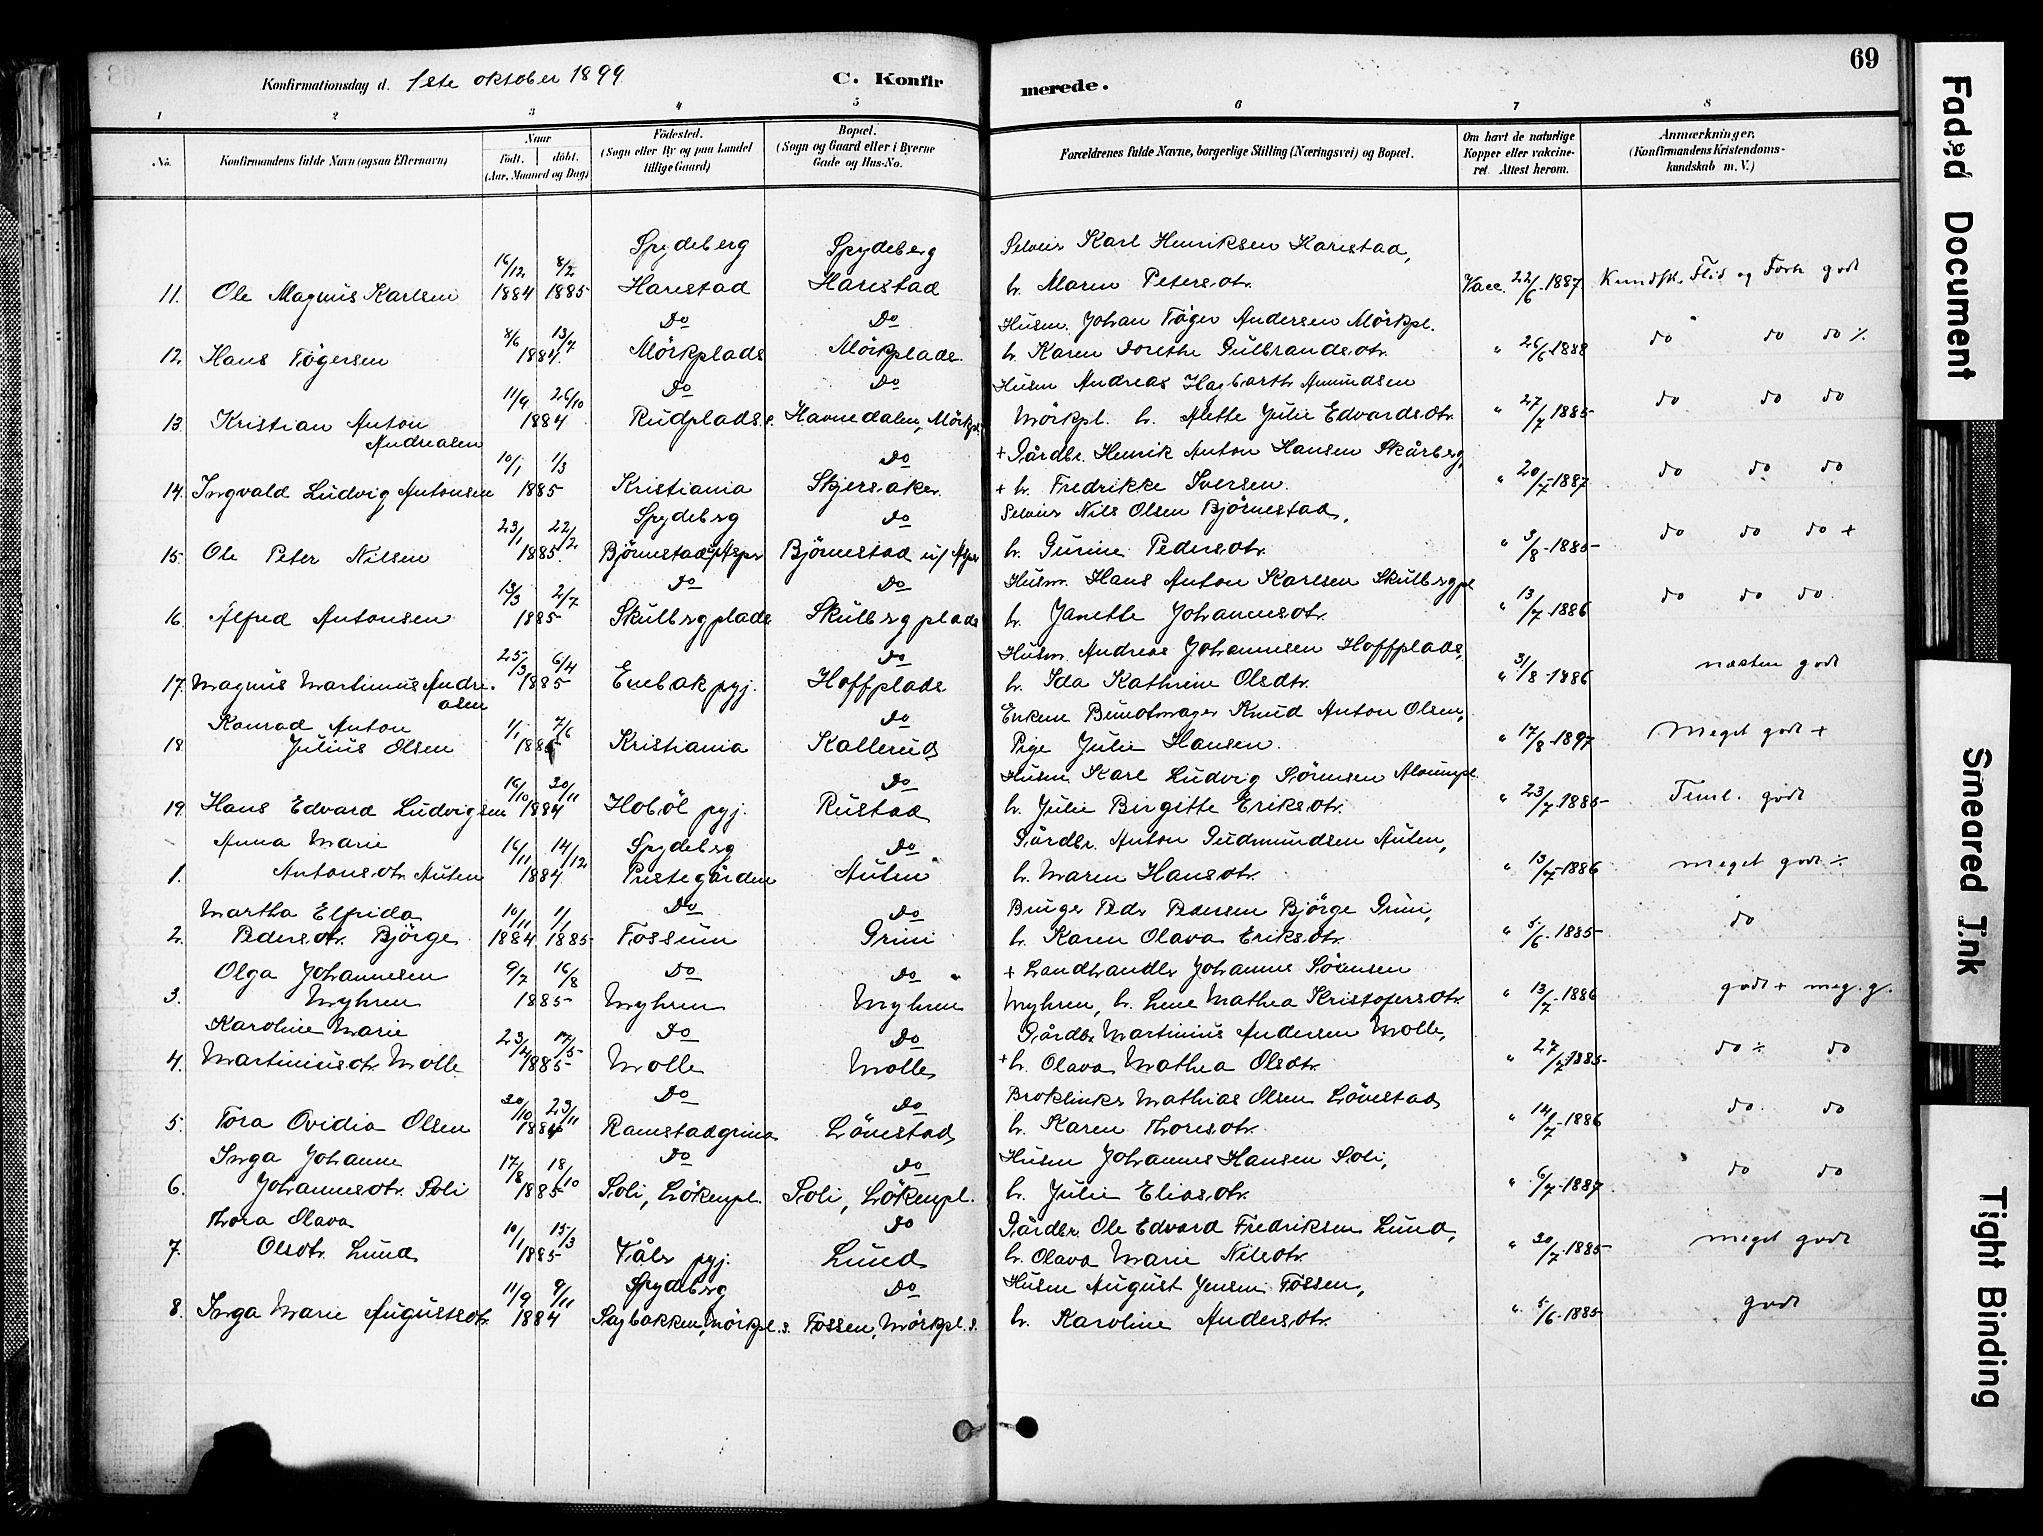 69
Konfirmationsdag d. 1ste oktober 1899
C. Konfirmerede.
1 2 3 4 5 6 7 8
No.
Konfirmandens fulde Navn (ogsaa Efternavn)
Naar
födt. döbt.
(Aar, Maaned og Dag)
Födested.
(Sogn eller By og paa Landet
tillige Gaard)
Bopæl.
(Sogn og Gaard eller i Byerne
Gade og Hus-No.
Forældrenes fulde Navne, borgerlige Stilling (Næringsvei) og Bopæl.
Om havt de naturlige
Kopper eller vakcine-
ret. Attest herom.
Anmærkninger,
(Konfirmandens Kristendoms-
kundskab m. V.)
Spydeberg Spydeberg Selveier Karl Henriksen Harestad,
11. Ole Magnus Karlsen 16/12 1884 8/2 1885 Harestad Harestad h. Maren Petersdtr. Vacc. 22/6-1887 Kundsk. Flid og Forh godt
Do Do Husm. Johan Töger Andersen Mörkpl.
12. Hans Tögersen 8/6 13/7 1884. Mörkplads Mörkplads. h. Karen Dorethe Gulbrandsdtr. " 26/6 1888 do do do ./.
Do Do Husm Andreas Hagbarth Amundsen
13. Kristian Anton Andreasen 11/9 26/10 1884 Rudplads. Havnedalen, Mörkpl. Mörkpl. h. Alette Julie Edvardsdtr. " 27/7 1885 do do do
Do + Gårdbr. Henrik Anton Hansen Skårberg,
14. Ingvald Ludvig Antonsen 10/1 1/3 1885 Kristiania Skjersaker. + h. Fredrikke Iversen. " 20/7-1887 do do do
Spydebrg Do Selveier Nils Olsen Björnestad,
15. Ole Peter Nilsen 23/1 22/2 1885. Björnestad Björnestad u/ h. Gurine Pedersdtr. " 3/8-1885 do do do +
Do Do Husm. Hans Anton Karlsen Skulbrgpl
16. Alfred Antonsen 13/3 2/7 1885 Skulbrgplads Skulbrgplads h. Janette Johannesdtr. " 13/7-1886 do do do
Do Husm. Andreas Johannesen Hoffplads,
17. Magnus Martinius Andreasen 25/3 6/4 1885 Enebak pgj. Hoffplads h. Ida Kathrine Olsdtr. " 31/8-1886 næsten godt
Do Enkem Bundtmager Knud Anton Olsen,
18 Konrad Anton Julius Olsen 1/1 7/6 1885 Kristiania Kallerud Pige Julie Hansen. " 17/8-1897 Meget godt +
Do Husm Karl Ludvig Sörensen
19. Hans Edvard Ludvigsen 16/10 30/11 1884 Hoböl pgj. Rustad h. Julie Birgitte Eriksdtr. " 23/7 1885 Teml. godt
Anna Marie Spydebrg Do Gårdbr. Anton Gudmundsen Auten,
1. Antonsdtr. Auten 16/11 14/12 1884 Prestegården Auten h. Maren Hansdtr. " 13/7-1886 meget godt ./.
Martha Elfrida Do Do Bruger Pedr Pedersen Björge Grini,
2. Pedersdtr. Björge 10/11 1884 1/1 1885 Fossum Grini h. Karen Olava Eriksdtr. " 5/6-1885 do
Olga Johannesen Do Do + Landhandlr Johannes Sörensen
3. Myhren 9/7 16/8 1885 Myhren Myhren Myhren, h. Lene Mathea Kristofersdtr. " 13/7-1886 godt + meg. g.
Karoline Marie Do Do Gårdbr Martinius Andersen Molle,
4. Martiniusdtr. Molle 23/4 17/5 1885 Molle Molle + h. Olava Mathea Olsdtr. " 27/7 1885 do ./. do
Do Do Mathias Olsen Lönestad
5. Tora Ovidia Olsen 30/10 23/11 1884 Ramstadgrina Lönestad h. Karen Thoresdtr. " 14/7-1886 do do
Inga Johanne Do Do Husm Johannes Hansen Soli,
6. Johannesdtr. Soli 17/8 18/10 1885 Soli, Lökenpl. Soli, Lökenpl. h. Julie Eliasdtr. " 6/7-1887 do do
Thora Olava Do Gårdbr. Ole Edvard Fredriksen Lund,
7. Olsdtr. Lund 10/1 15/3 1885 Våler pgj. Lund h. Olava Marie Nilsdtr. " 30/7-1885 meget godt
Spydebrg Do Husm August Jensen Fossen,
8. Inga Marie Augustsdtr. 11/9 9/11 1884 Sagbakken, Mörkpl. s. Fossen, Mörkpl. s. h. Karoline Andersdtr. " 5/6-1885 godt
Faded Document
Smeared Ink
Tight Binding